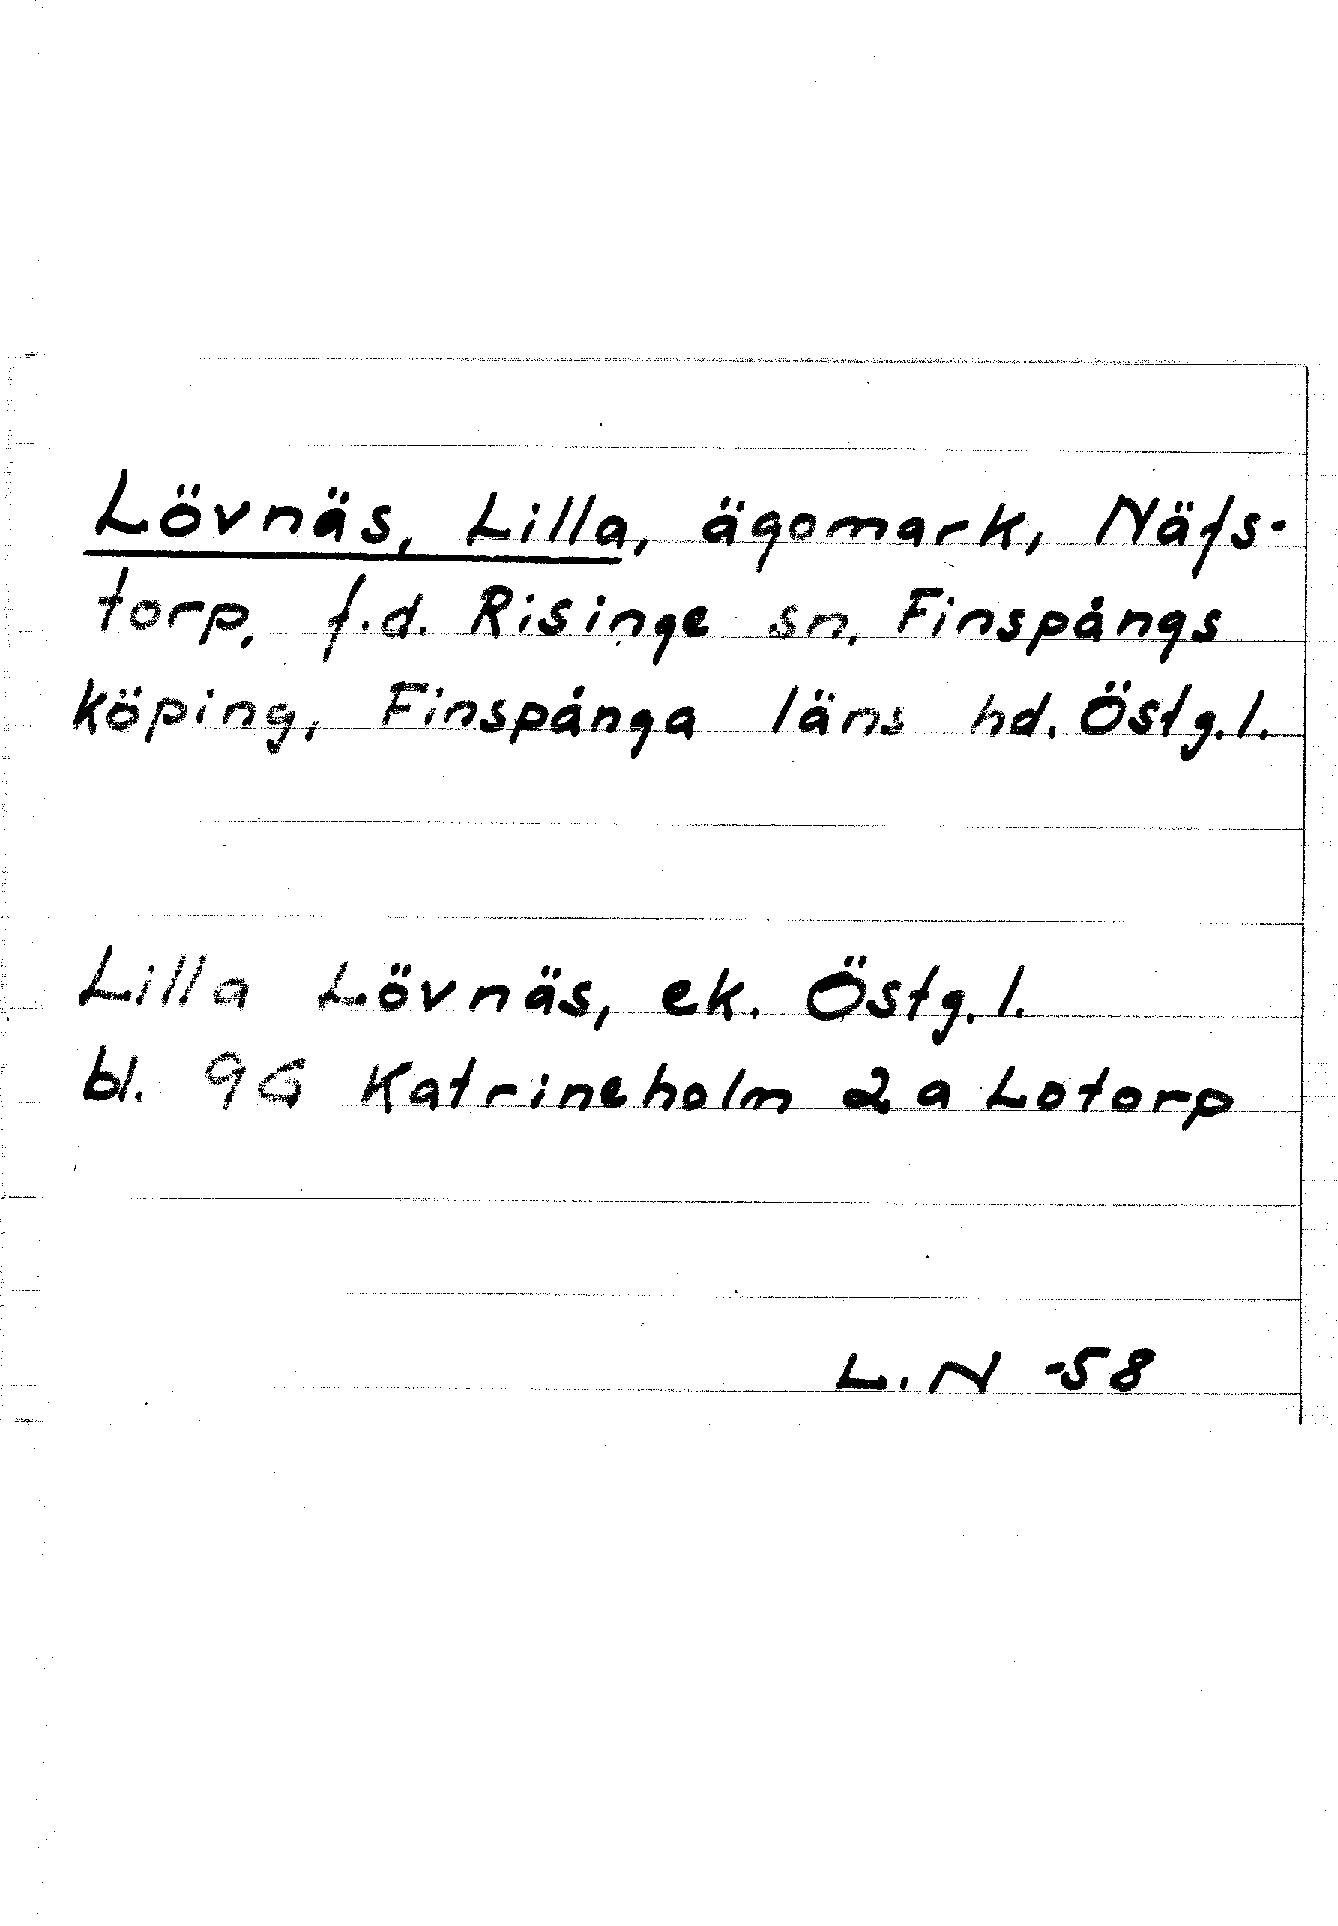 Lövnäs, Lilla, ägomark, Näfs-
torp, f.d. Risinge sn, Finspångs
köping, Finspånga läns hd. Östg.l.
Lilla Lövnäs, ek. Östg.l.
bl. 9G Katrineholm 2a Lotorp
L.N -58